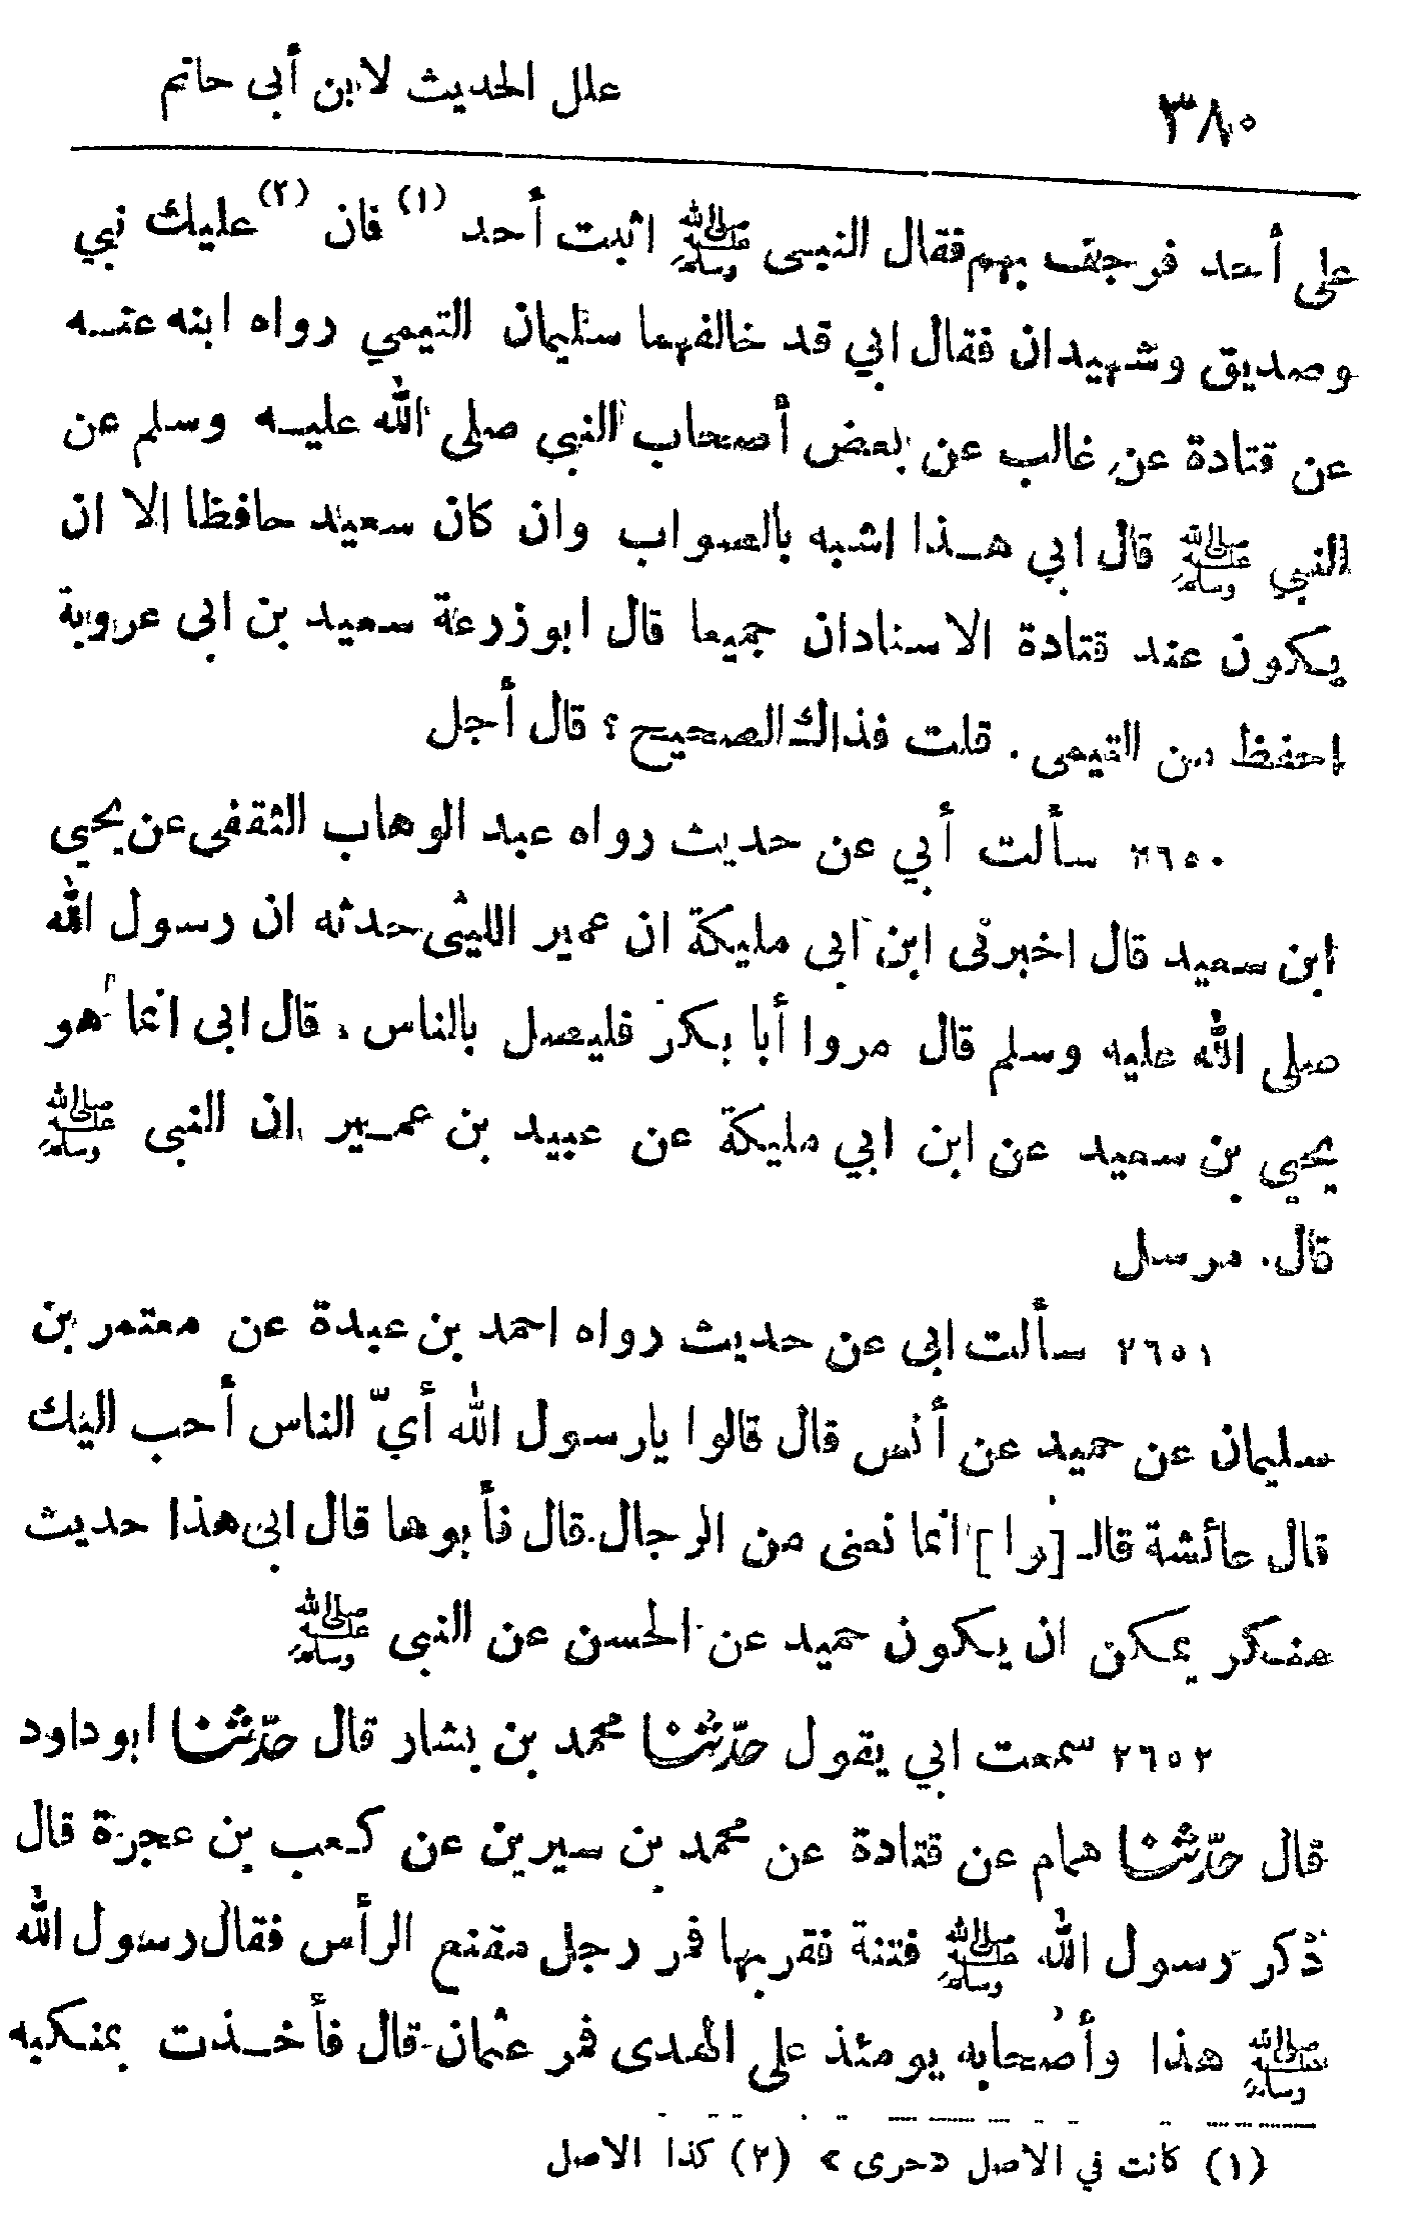 ٣٨٠
علل الحديث لابن أبى حاتم
على أحد فرجف بهم فقال النبى ﷺ اثبت أحد (١) فان (٢) عليك نبي
وصديق وشهيدان فقال ابي قد خالفهما سليمان التيمي رواه ابنه عنه
عن قتادة عن غالب عن بعض أصحاب النبي صلى الله عليه وسلم عن
النبي ﷺ قال ابي هذا اشبه بالصواب وان كان سعيد حافظا الا ان
يكون عند قتادة الاسنادان جميعا قال ابو زرعة سعيد بن ابى عروبة
احفظ من التيمى . قلت فذاك الصحيح ؟ قال أجل
٢٦٥٠ سألت أبي عن حديث رواه عبد الوهاب الثقفى عن يحيى
ابن سعيد قال اخبرنى ابن ابي مليكة ان عمير الليثى حدثه ان رسول الله
صلى الله عليه وسلم قال مروا أبا بكر فليصل بالناس . قال ابى انما هو
يحيي بن سعيد عن ابن ابي مليكة عن عبيد بن عمير ان النبى ﷺ
قال . مرسل
٢٦٥١ سألت ابى عن حديث رواه احمد بن عبدة عن معتمر بن
سليمان عن حميد عن أنس قال قالوا يارسول الله أيّ الناس أحب اليك
قال عائشة قالـ [وا] انما نعنى من الرجال . قال فأبوها قال ابى هذا حديث
منكر يمكن ان يكون حميد عن الحسن عن النبى ﷺ
٢٦٥٢ سمعت ابي يقول حدّثنا محمد بن بشار قال حدّثنا ابو داود
قال حدّثنا همام عن قتادة عن محمد بن سيرين عن كعب بن عجرة قال
ذكر رسول الله ﷺ فتنة فقربها فمر رجل مقنع الرأس فقال رسول الله
ﷺ هذا وأصحابه يومئذ على الهدى فمر عثمان قال فأخذت بمنكبه
(١) كانت في الاصل «حرى» (٢) كذا الاصل